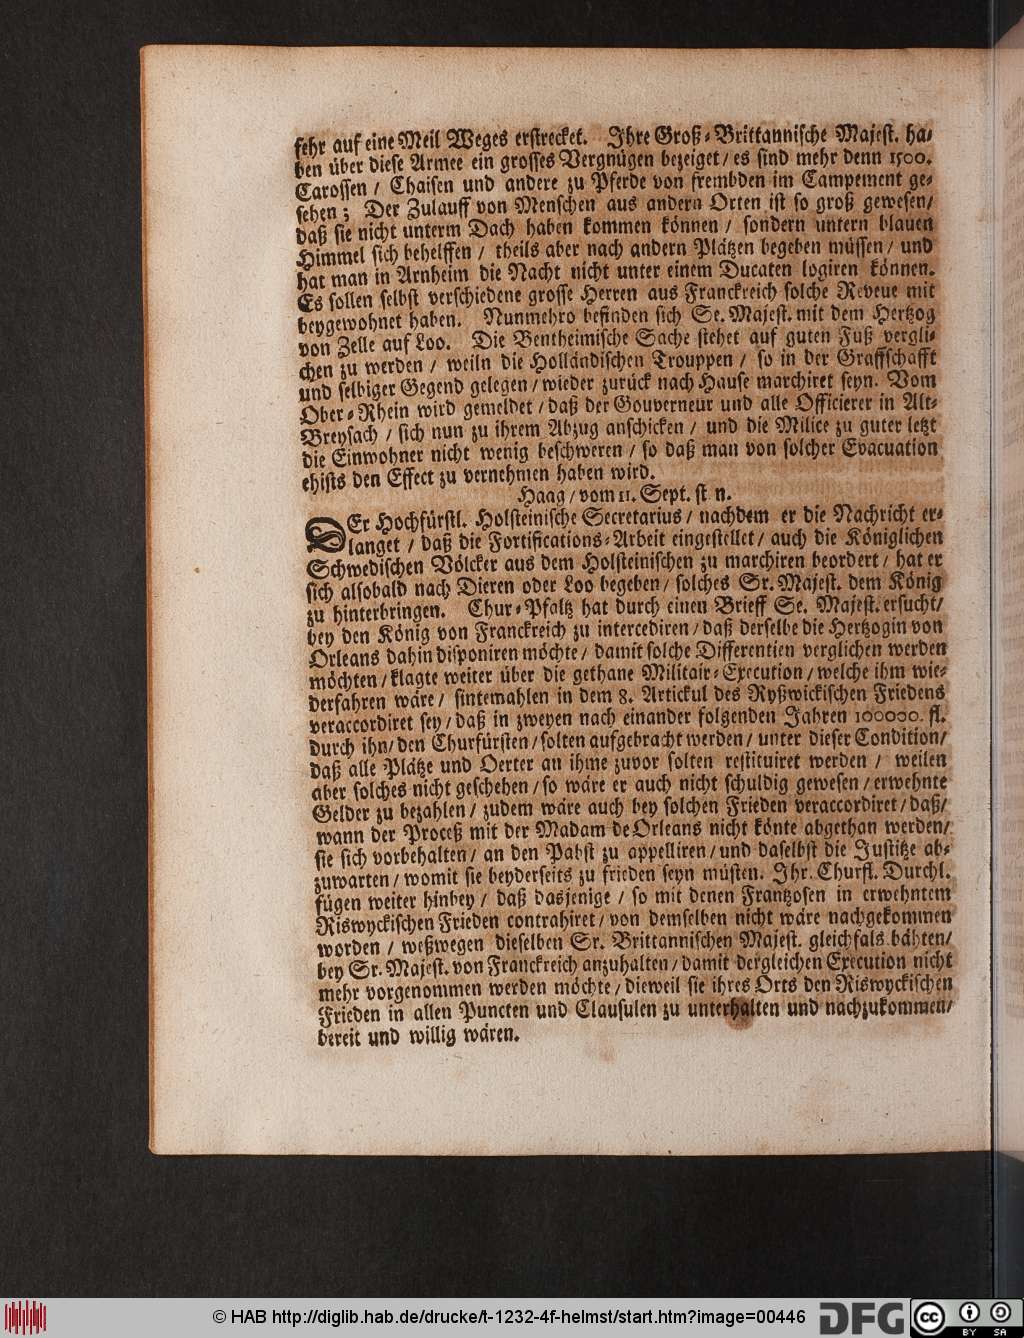 sehr auf eine Meil Weges erstrecket. Ihre Groß-Brittannische Majest. ha-
ben über diese Armee ein grosses Vergnügen bezeiget / es sind mehr denn 1500.
Carossen / Chaisen und andere zu Pferde von frembden im Campement ge-
sehen; Der Zulauff von Menschen aus andern Orten ist so groß gewesen /
daß sie nicht unterm Dach haben kommen können / sondern untern blauen
Himmel sich behelffen / theils aber nach andern Plätzen begeben müssen / und
hat man in Arnheim die Nacht nicht unter einem Ducaten logiren können.
Es sollen selbst verschiedene grosse Herren aus Franckreich solche Reveue mit
beygewohnet haben. Nunmehro befinden sich Se. Majest. mit dem Hertzog
von Zelle auf Loo. Die Bentheimische Sache stehet auf guten Fuß vergli-
chen zu werden / weiln die Holländischen Trouppen / so in der Graffschafft
und selbiger Gegend gelegen / wieder zurück nach Hause marchiret seyn. Vom
Ober-Rhein wird gemeldet / daß der Gouverneur und alle Officierer in Alt-
Breysach / sich nun zu ihrem Abzug anschicken / und die Milice zu guter letzt
die Einwohner nicht wenig beschweren / so daß man von solcher Evacuation
ehists den Effect zu vernehmen haben wird.
Haag / vom 11. Sept. st. n.
DEr Hochfürstl. Holsteinische Secretarius / nachdem er die Nachricht er-
langet / daß die Fortifications-Arbeit eingestellet / auch die Königlichen
Schwedischen Völcker aus dem Holsteinischen zu marchiren beordert / hat er
sich alsobald nach Dieren oder Loo begeben / solches Sr. Majest. dem König
zu hinterbringen. Chur-Pfaltz hat durch einen Brieff Se. Majest. ersucht /
bey den König von Franckreich zu intercediren / daß derselbe die Hertzogin von
Orleans dahin disponiren möchte / damit solche Differentien verglichen werden
möchten / klagte weiter über die gethane Militair-Execution / welche ihm wie-
derfahren wäre / sintemahlen in dem 8. Artickul des Ryßwickischen Friedens
veraccordiret sey / daß in zweyen nach einander folgenden Jahren 100000. fl.
durch ihn / den Churfürsten / solten aufgebracht werden / unter dieser Condition /
daß alle Plätze und Oerter an ihme zuvor solten restituiret werden / weilen
aber solches nicht geschehen / so wäre er auch nicht schuldig gewesen / erwehnte
Gelder zu bezahlen / zudem wäre auch bey solchen Frieden veraccordiret / daß /
wann der Proceß mit der Madam de Orleans nicht könte abgethan werden /
sie sich vorbehalten / an den Pabst zu appelliren / und daselbst die Justitze ab-
zuwarten / womit sie beyderseits zu frieden seyn müsten. Ihr. Churfl. Durchl.
fügen weiter hinbey / daß dasjenige / so mit denen Frantzosen in erwehntem
Riswyckischen Frieden contrahiret / von demselben nicht wäre nachgekommen
worden / weßwegen dieselben Sr. Brittannischen Majest. gleichfals bähten /
bey Sr. Majest. von Franckreich anzuhalten / damit dergleichen Execution nicht
mehr vorgenommen werden möchte / dieweil sie ihres Orts den Riswyckischen
Frieden in allen Puncten und Clausulen zu unterhalten und nachzukommen /
bereit und willig wären.
© HAB http://diglib.hab.de/drucke/t-1232-4f-helmst/start.htm?image=00446
DFG
cc BY SA